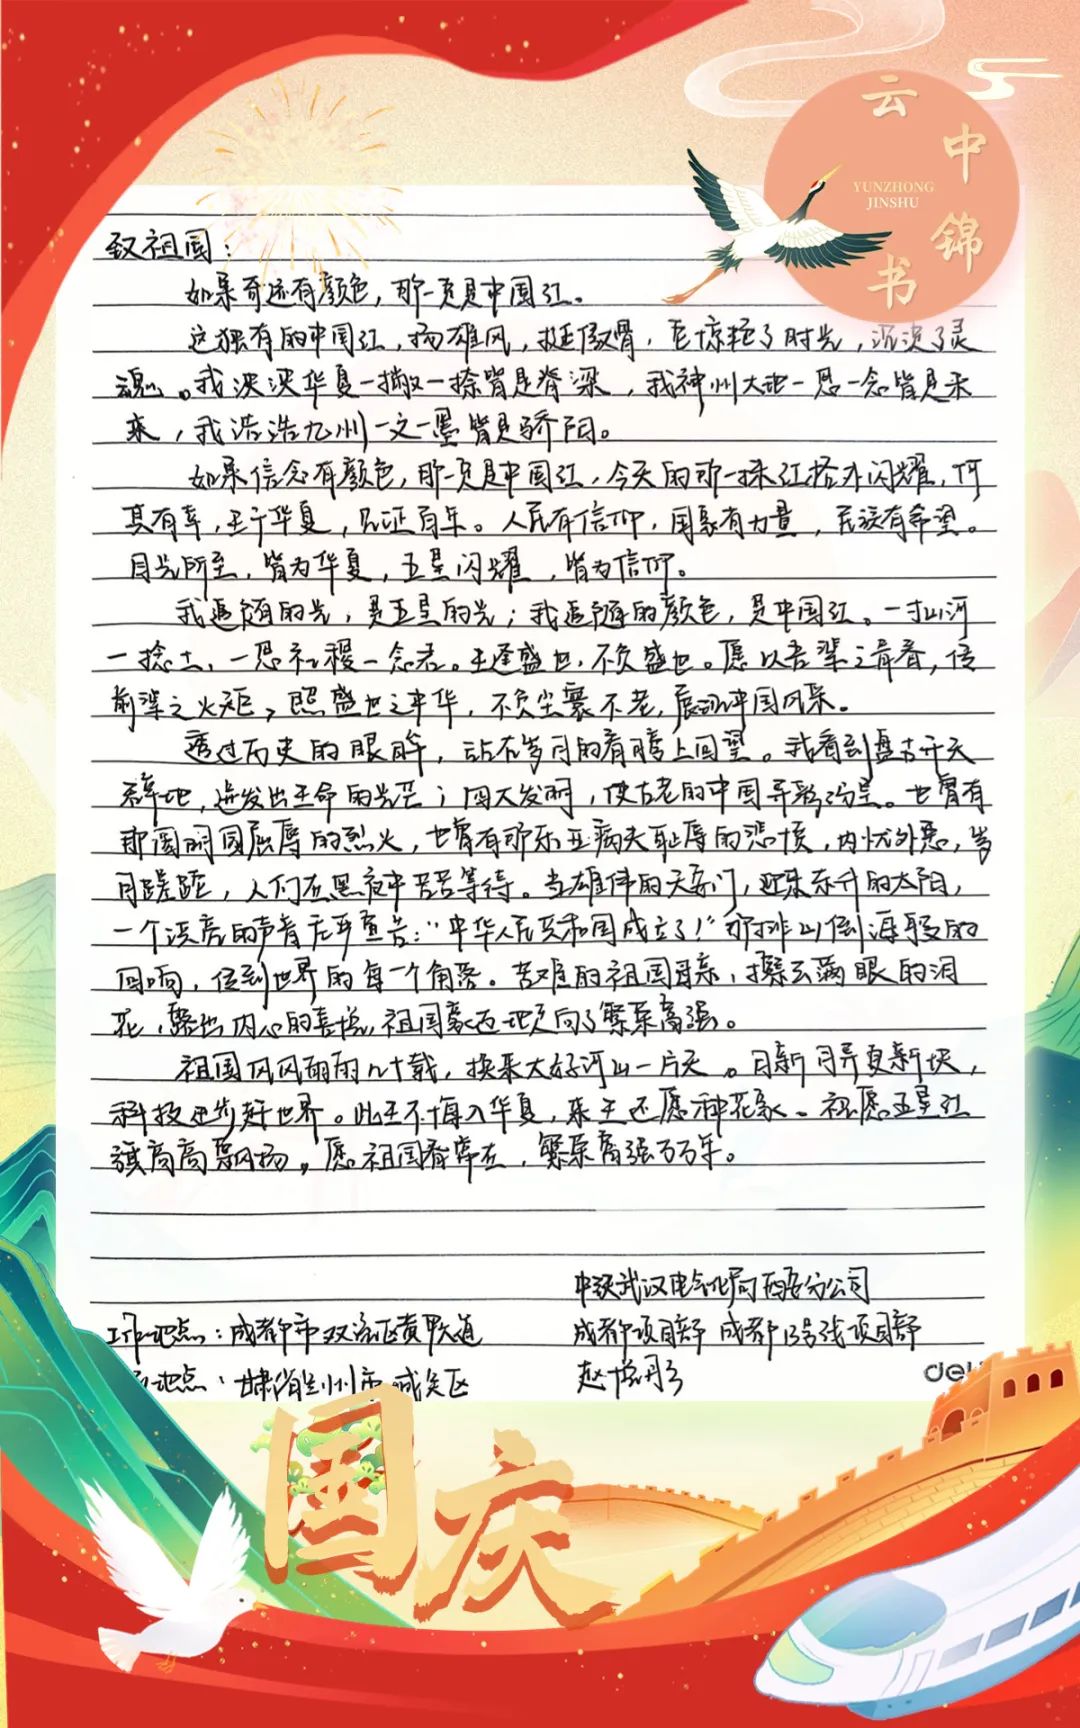 云中锦书
YUNZHONG
JINSHU
致祖国：
如果奇迹有颜色，那一定是中国红。
这独有的中国红，扬雄风，挺傲骨，它惊艳了时光，沉淀了灵
魂。我泱泱华夏一撇一捺皆是脊梁，我神州大地一思一念皆是未
来，我浩浩九州一文一墨皆是骄阳。
如果信念有颜色，那一定是中国红，今天的那一抹红格外闪耀，何
其有幸，生于华夏，见证百年。人民有信仰，国家有力量，民族有希望。
目光所至，皆为华夏，五星闪耀，皆为信仰。
我追随的光，是五星的光；我追随的颜色，是中国红。一寸山河
一捻土，一思社稷一念君。生逢盛世，不负盛世。愿以吾辈之青春，传
前辈之火炬，照盛世之中华，不负尘襄不老，展现中国风采。
透过历史的眼眸，站在岁月的肩膀上回望。我看到盘古开天
辟地，迸发出生命的光芒；四大发明，使古老的中国异彩纷呈。也曾有
那圆明园屈辱的烈火，也曾有那东亚病夫耻辱的悲愤，内忧外患，岁
月蹉跎，人们在黑夜中苦苦等待。当雄伟的天安门，迎来东升的太阳，
一个洪亮的声音庄严宣告：“中华人民共和国成立了！”那排山倒海般的
回响，传到世界的每一个角落。苦难的祖国母亲，擦去满眼的泪
花，露出内心的喜悦，祖国豪迈地走向了繁荣富强。
祖国风风雨雨几十载，换来大好河山一片天。日新月异更新快，
科技进步赶世界。此生不悔入华夏，来生还愿种花家。祝愿五星红
旗高高飘扬。愿祖国春常在，繁荣富强万万年。
中铁武汉电气化局西安分公司
工作地点：成都市双流区黄甲大道
成都项目部 成都13号线项目部
地点：甘肃省兰州市城关区
赵悦彤
国庆